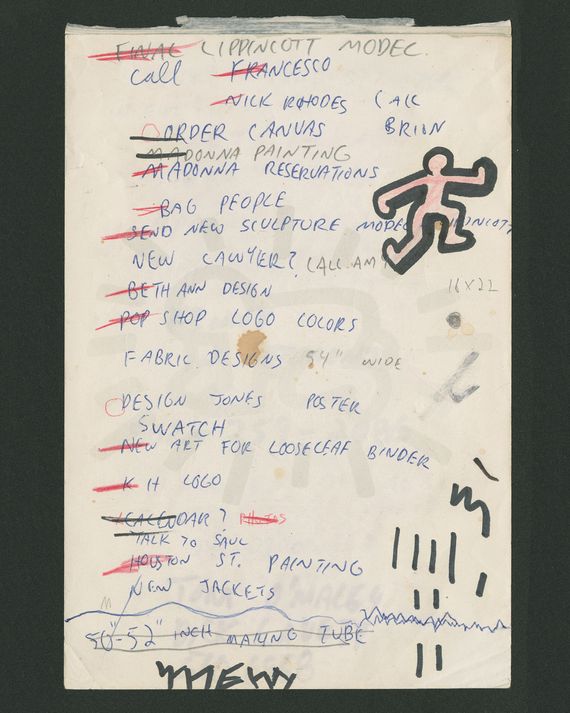 FINAL LIPPINCOTT MODEL.
call FRANCESCO
NICK RHODES CALL
ORDER CANVAS BRION
MADONNA PAINTING
MADONNA RESERVATIONS
BAG PEOPLE
SEND NEW SCULPTURE MODEL
NEW LAWYER? (CALL AMY
BETH ANN DESIGN
16X22
POP SHOP LOGO COLORS
FABRIC DESIGNS 54" WIDE
DESIGN JONES POSTER
SWATCH
NEW ART FOR LOOSELEAF BINDER
K H LOGO
CALENDAR?
TALK TO SAUL
HOUSTON ST. PAINTING
NEW JACKETS
50"-52" INCH MAILING TUBE